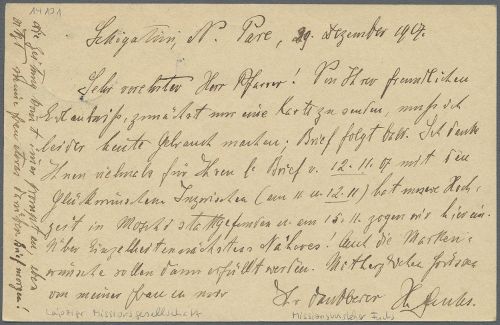 14131
Schigatini, N. Pare, 29. Dezember 1907.
Sehr verehrter Herr Pfarrer! Von Ihrer freundlichen
Erlaubniß, zunächst nur eine Karte zu senden, muß ich
leider heute Gebrauch machen; Brief folgt bald. Ich danke
Ihnen vielmals für Ihren l. Brief v. 12.11.07 mit den
Glückwünschen. Inzwischen (am 11. u. 12.11) hat unsere Hoch-
zeit in Moschi stattgefunden u. am 15.11. zogen wir hier ein.
Über Einzelheiten nächstens Näheres! Auch die Marken-
wünsche sollen dann erfüllt werden. Mit herzlichen Grüssen
von meiner Frau u. mir
Ihr dankbarer H. Fuchs.
die Zeitung kommt immer
meine Frau
Leipziger Missionsgesellschaft
Missionar Fuchs